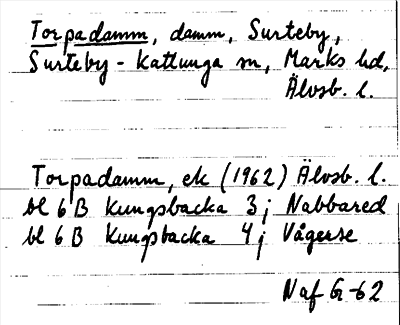 Torpadamm, damm, Surteby,
Surteby-Kattunga sn, Marks hd,
Älvsb. l.
Torpadamm, ek (1962) Älvsb. l.
bl 6 B Kungsbacka 3 j Nabbared
bl 6 B Kungsbacka 4 j Vågerse
Naf G-62